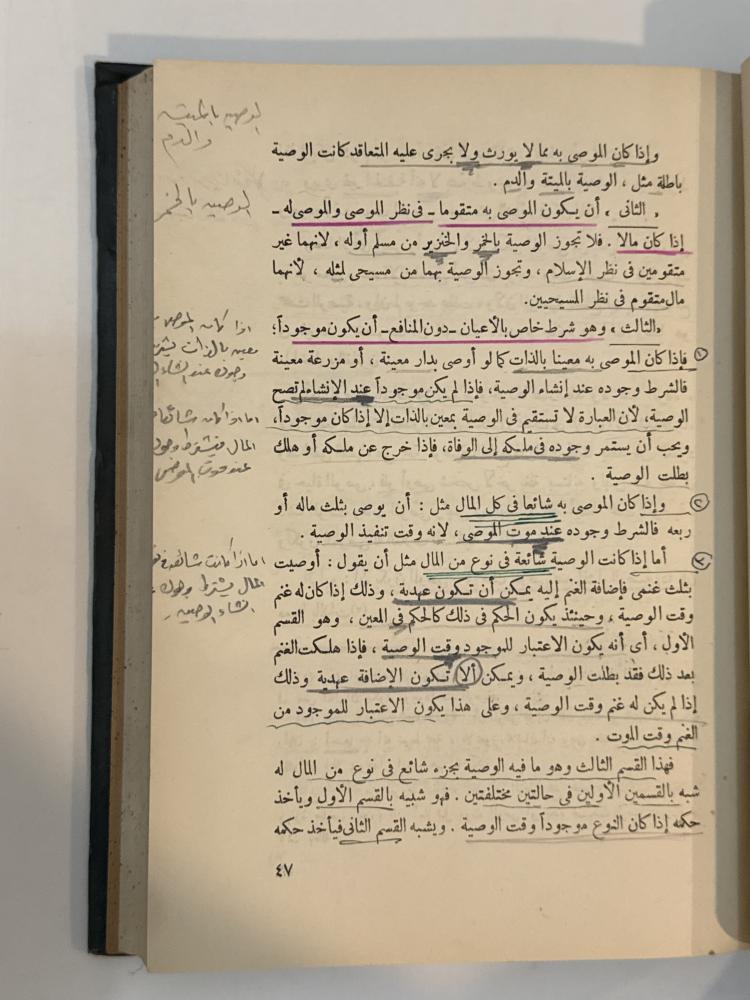 وإذا كان الموصى به مما لا يورث ولا يجرى عليه التعاقد كانت الوصية
باطلة مثل ، الوصية بالميتة والدم .
« الثانى » أن يكون الموصى به متقوما ـ فى نظر الموصى والموصى له ـ
إذا كان مالا . فلا تجوز الوصية بالخمر والخنزير من مسلم أو له ، لانهما غير
متقومين فى نظر الإسلام ، وتجوز الوصية بهما من مسيحى لمثله ، لأنهما
مال متقوم فى نظر المسيحيين .
« الثالث » وهو شرط خاص بالأعيان ـ دون المنافع ـ أن يكون موجوداً ؛
① فإذا كان الموصى به معينا بالذات كما لو أوصى بدار معينة ، أو مزرعة معينة
فالشرط وجوده عند إنشاء الوصية ، فإذا لم يكن موجوداً عند الإنشاء لم تصح
الوصية ، لأن العبارة لا تستقيم فى الوصية بمعين بالذات إلا إذا كان موجوداً ،
ويجب أن يستمر وجوده فى ملكه إلى الوفاة ، فإذا خرج عن ملكه أو هلك
بطلت الوصية .
② وإذا كان الموصى به شائعا فى كل المال مثل : أن يوصى بثلث ماله أو
ربعه فالشرط وجوده عند موت الموصى ، لانه وقت تنفيذ الوصية .
③ أما إذا كانت الوصية شائعة فى نوع من المال مثل أن يقول : أوصيت
بثلث غنمى فإضافة الغنم إليه يمكن أن تكون عهدية ، وذلك إذا كان له غنم
وقت الوصية ، وحينئذ يكون الحكم فى ذلك كالحكم فى المعين ، وهو القسم
الأول ، أى أنه يكون الاعتبار للموجود وقت الوصية ، فإذا هلكت الغنم
بعد ذلك فقد بطلت الوصية ، ويمكن ألا تكون الإضافة عهدية وذلك
إذا لم يكن له غنم وقت الوصية ، وعلى هذا يكون الاعتبار للموجود من
الغنم وقت الموت .
فهذا القسم الثالث وهو ما فيه الوصية بجزء شائع فى نوع من المال له
شبه بالقسمين الأولين فى حالتين مختلفتين . فهو شبيه بالقسم الأول ويأخذ
حكمه إذا كان النوع موجوداً وقت الوصية . ويشبه القسم الثانى فيأخذ حكمه
٤٧
الوصية بالميتة
والدم
الوصية بالخمر
اذا كان الموصى
معين بالذات يشترط
وجوده عند انشاء
اما اذا كان شائعا
المال فيشترط وجود
عند موت الموصى
اما اذا كانت شائعة
المال يشترط وجود
انشاء الوصية